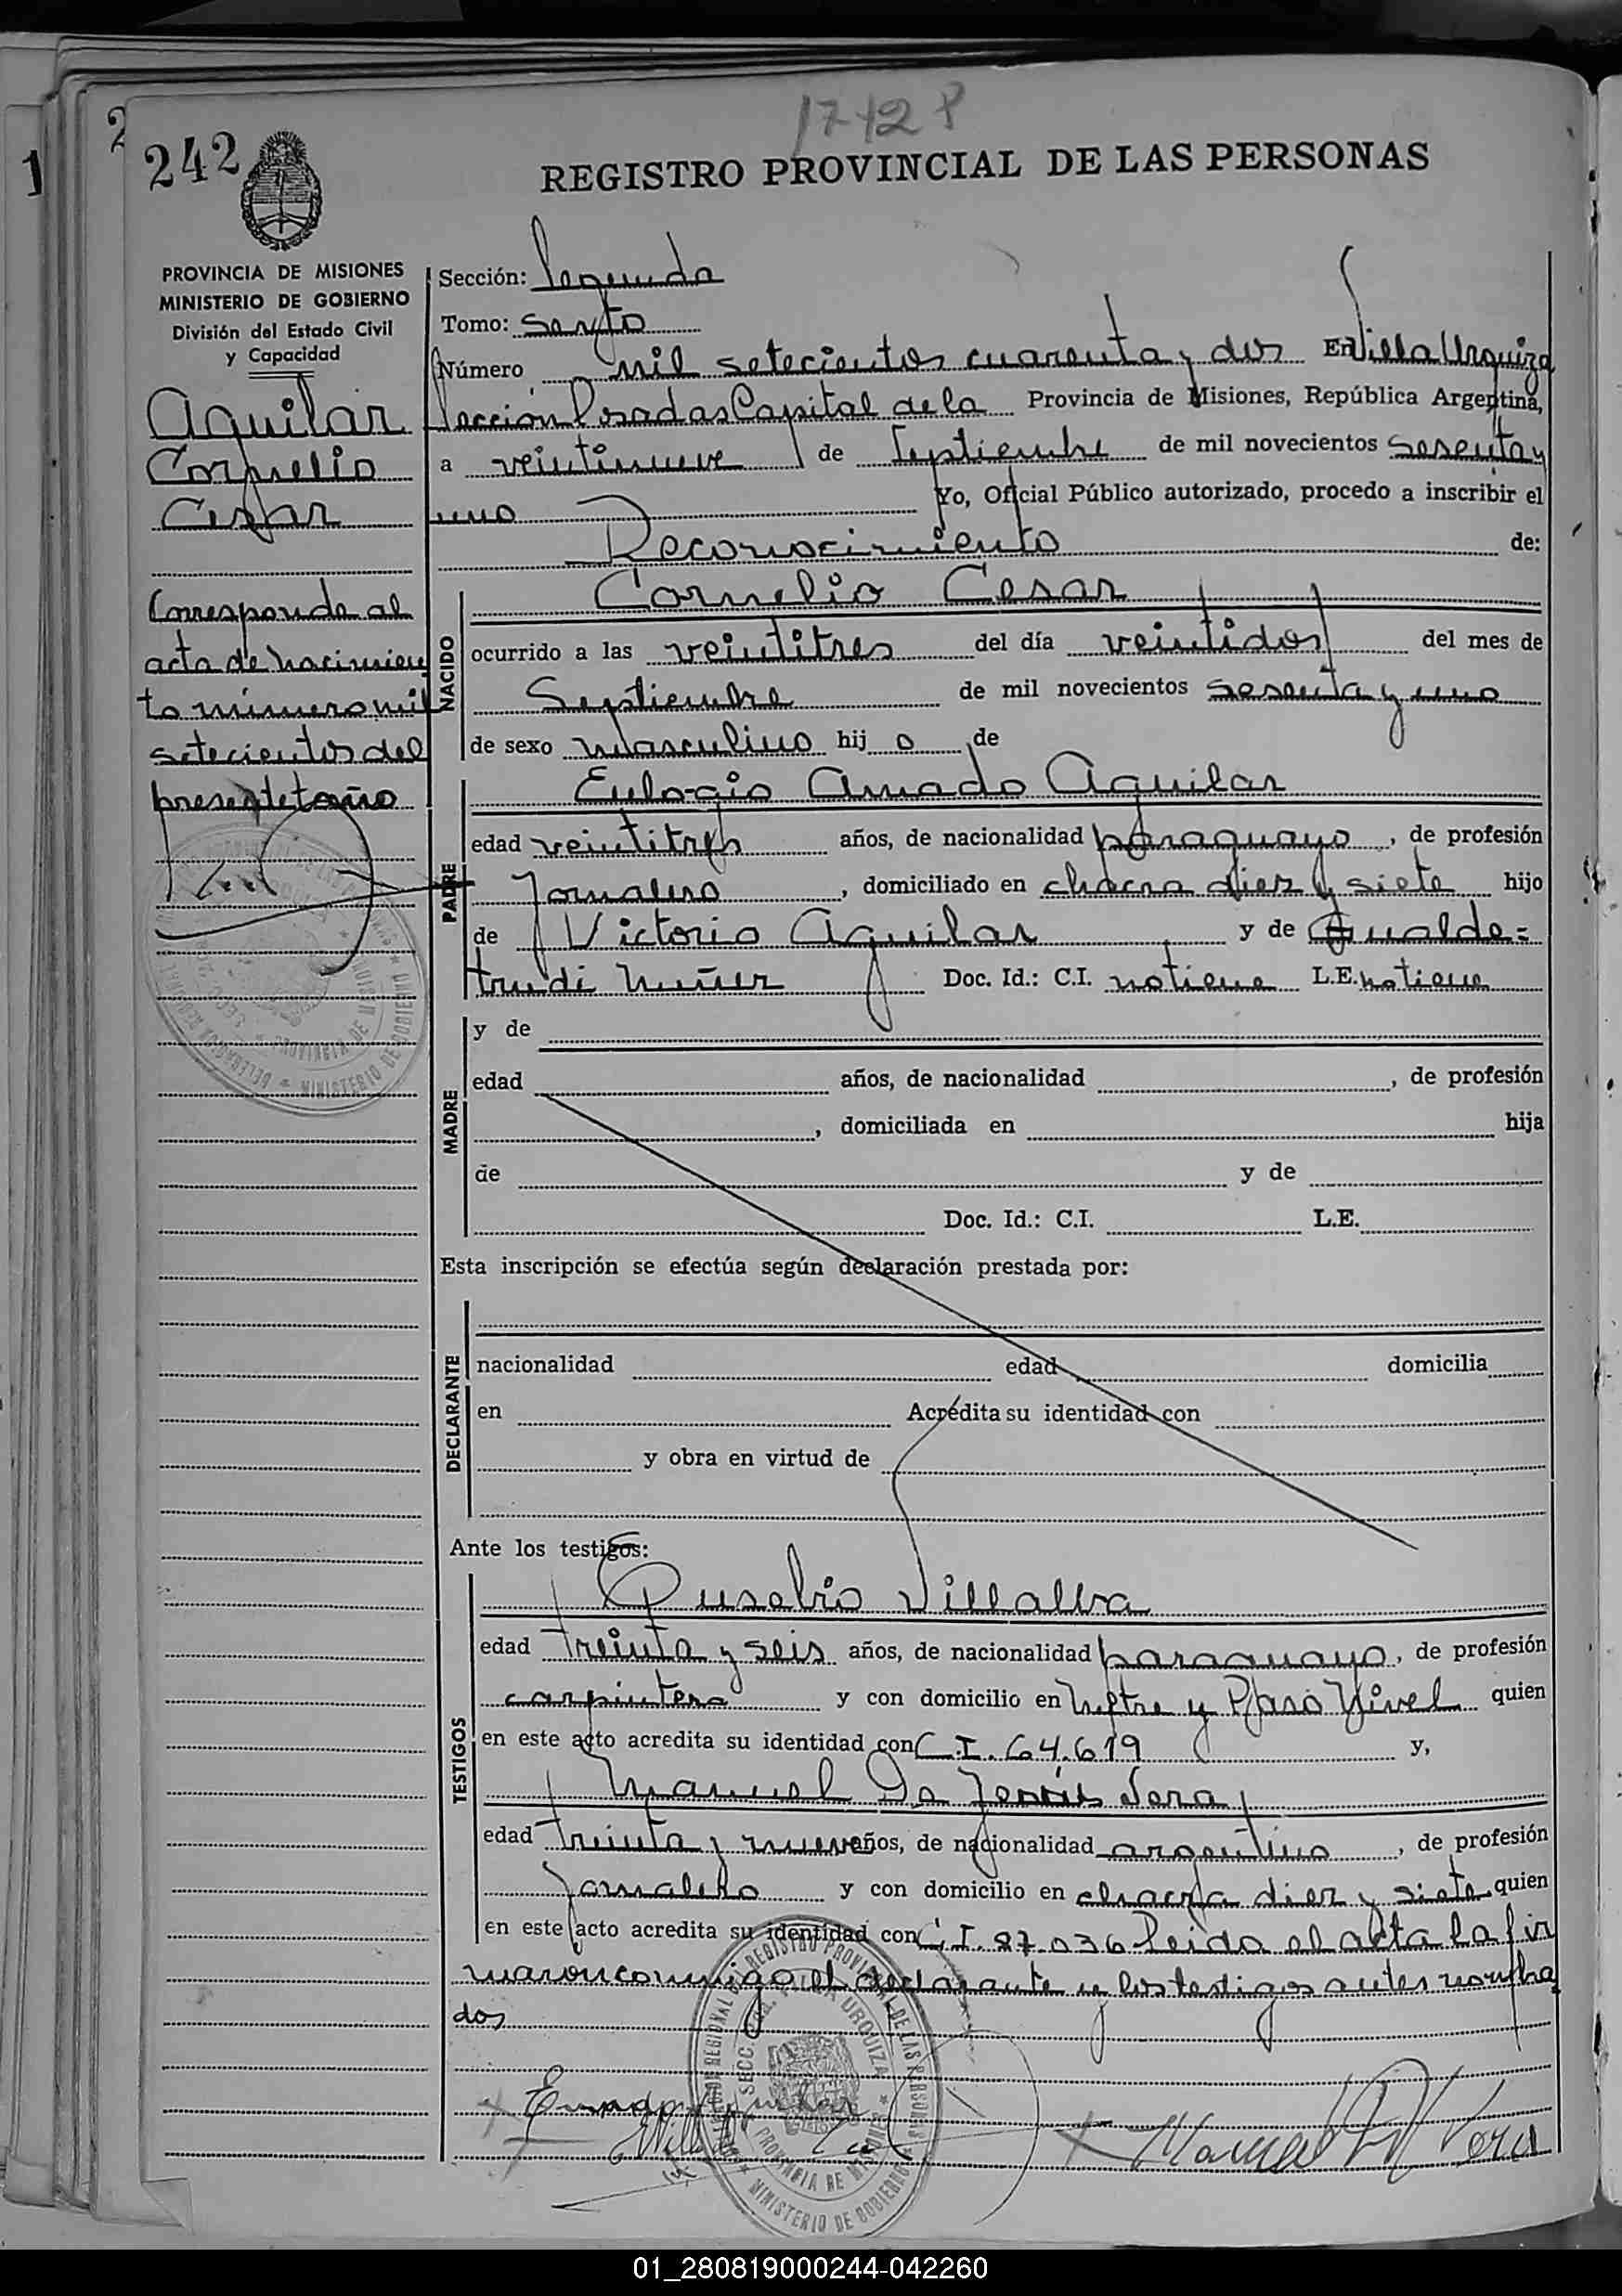 1742 P
242
REGISTRO PROVINCIAL DE LAS PERSONAS
PROVINCIA DE MISIONES
MINISTERIO DE GOBIERNO
División del Estado Civil
y Capacidad
Aguilar
Cornelio
Cesar
Corresponde al
acta de nacimien
to número mil
setecientos del
presente año
Sección: Segunda
Tomo: Sexto
Número mil setecientos cuarenta y dos En Villa Urquiza
Sección Posadas Capital de la Provincia de Misiones, República Argentina,
a veintinueve de Septiembre de mil novecientos sesenta y
uno Yo, Oficial Público autorizado, procedo a inscribir el
Reconocimiento de:
NACIDO
Cornelio Cesar
ocurrido a las veintitres del día veintidos del mes de
Septiembre de mil novecientos sesenta y uno
de sexo masculino hij o de
PADRE
Eulogio Amado Aguilar
edad veintitres años, de nacionalidad paraguayo, de profesión
Jornalero, domiciliado en chacra diez y siete hijo
de Victorio Aguilar y de
trudi Nuñez Doc. Id.: C.I. no tiene L.E. no tiene
MADRE
y de
edad años, de nacionalidad , de profesión
, domiciliada en hija
de y de
Doc. Id.: C.I. L.E.
Esta inscripción se efectúa según declaración prestada por:
DECLARANTE
nacionalidad edad domicilia
en Acredita su identidad con
y obra en virtud de
Ante los testigos:
TESTIGOS
Eusebio Villalba
edad treinta y seis años, de nacionalidad paraguayo, de profesión
carpintero y con domicilio en y Paso Nivel quien
en este acto acredita su identidad con C.I. 64.619 y,
Manuel De Jesús Vera
edad treinta y nueve años, de nacionalidad argentino, de profesión
Jornalero y con domicilio en chacra diez y siete quien
en este acto acredita su identidad con C.I. 87.036 Leída el acta la fir
maron conmigo el declarante y los testigos antes nombra
dos
Manuel D J Vera
SECC. VILLA URQUIZA
PROVINCIA DE MISIONES
MINISTERIO DE GOBIERNO
01_280819000244-042260